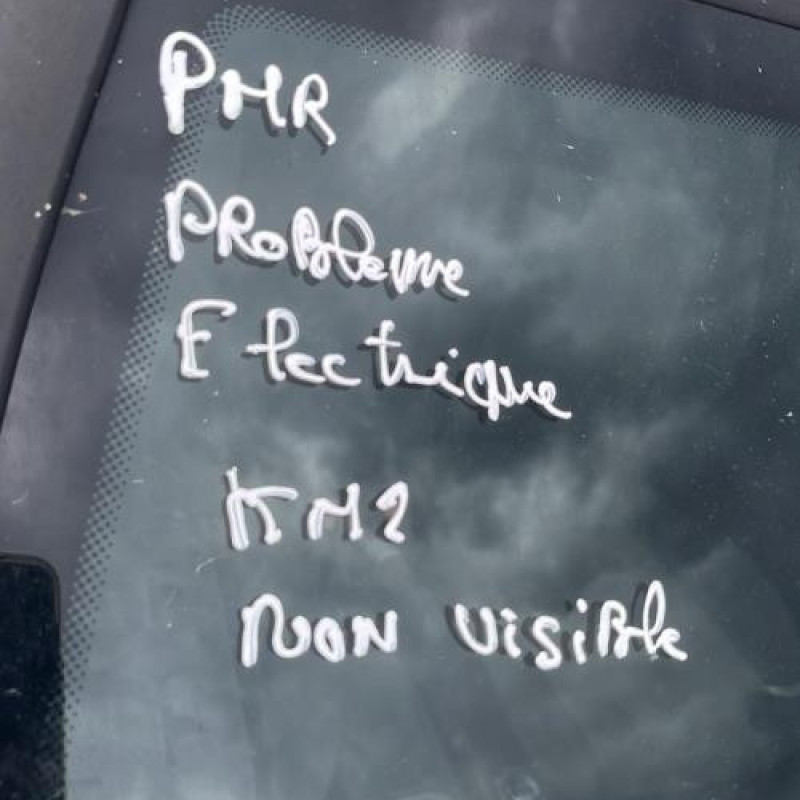 PMR
PRoBleme
Electrique
KM2
NON VisiBle